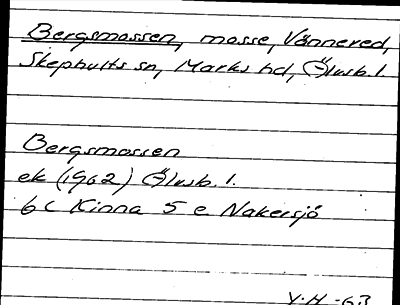 Bergsmossen, mosse, Vännered,
Skephults sn, Marks hd, Älvsb. l.
Bergsmossen
ek (1962) Älvsb. l.
6 c Kinna 5 e Nakersjö
V.H. -63